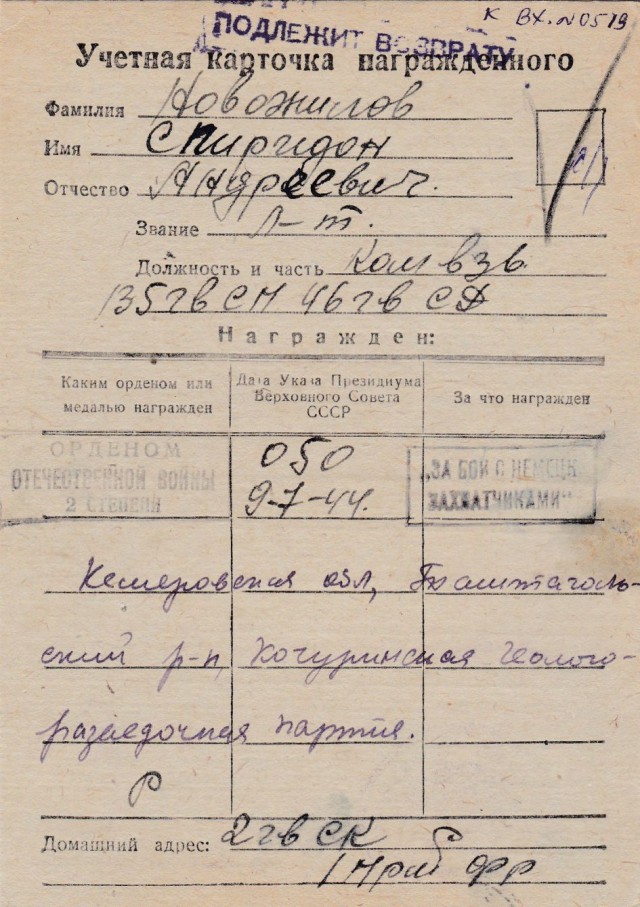 К вх. N 0519
ПОДЛЕЖИТ ВОЗВРАТУ
Учетная карточка награжденного
Фамилия Новожилов
Имя Спиридон
Отчество Андреевич.
Звание л-т.
Должность и часть Ком взв
135 гв СП 46 гв СД
Награжден:
Каким орденом или медалью награжден
Дата Указа Президиума Верховного Совета СССР
За что награжден
ОРДЕНОМ
ОТЕЧЕСТВЕННОЙ ВОЙНЫ
2 СТЕПЕНИ
050
9-7-44.
„ЗА БОИ С НЕМЕЦК
ЗАХВАТЧИКАМИ"
Кемеровская обл, Таштаголь-
ский р-н, Кочуринская геолого-
разведочная партия.
Р
Домашний адрес: 2 гв СК
1 Приб фр